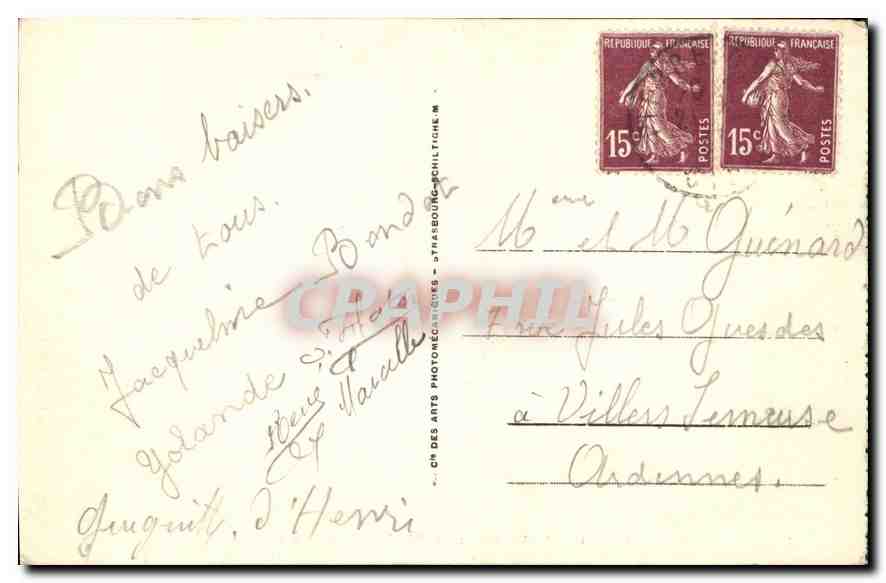 Bons baisers.
de tous.
Jacqueline
Yolande
René et Marcelle
d'Henri
Cie DES ARTS PHOTOMÉCANIQUES - STRASBOURG-SCHILTIGHEIM
RÉPUBLIQUE FRANÇAISE
15c
POSTES
RÉPUBLIQUE FRANÇAISE
15c
POSTES
Mme et M Guénard
rue Jules Guesdes
à Villers Semeuse
Ardennes.
CPAPHIL